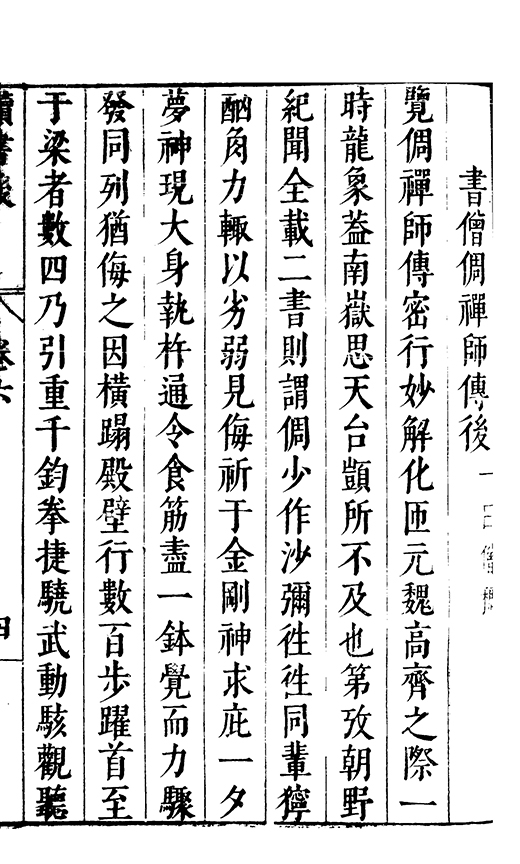 書僧倜禪師傳後
覽倜禪師傳密行妙解化匝元魏高齊之際一
時龍象蓋南嶽思天台顗所不及也第攷朝野
紀聞全載二書則謂倜少作沙彌徃徃同輩獰
酗角力輒以劣弱見侮祈于金剛神求庇一夕
夢神現大身執杵通令食筋盡一鉢覺而力驟
發同列猶侮之因橫蹋殿壁行數百步躍首至
于梁者數四乃引重千鈞拳捷驍武動駭觀聽
讀書後
卷六
四